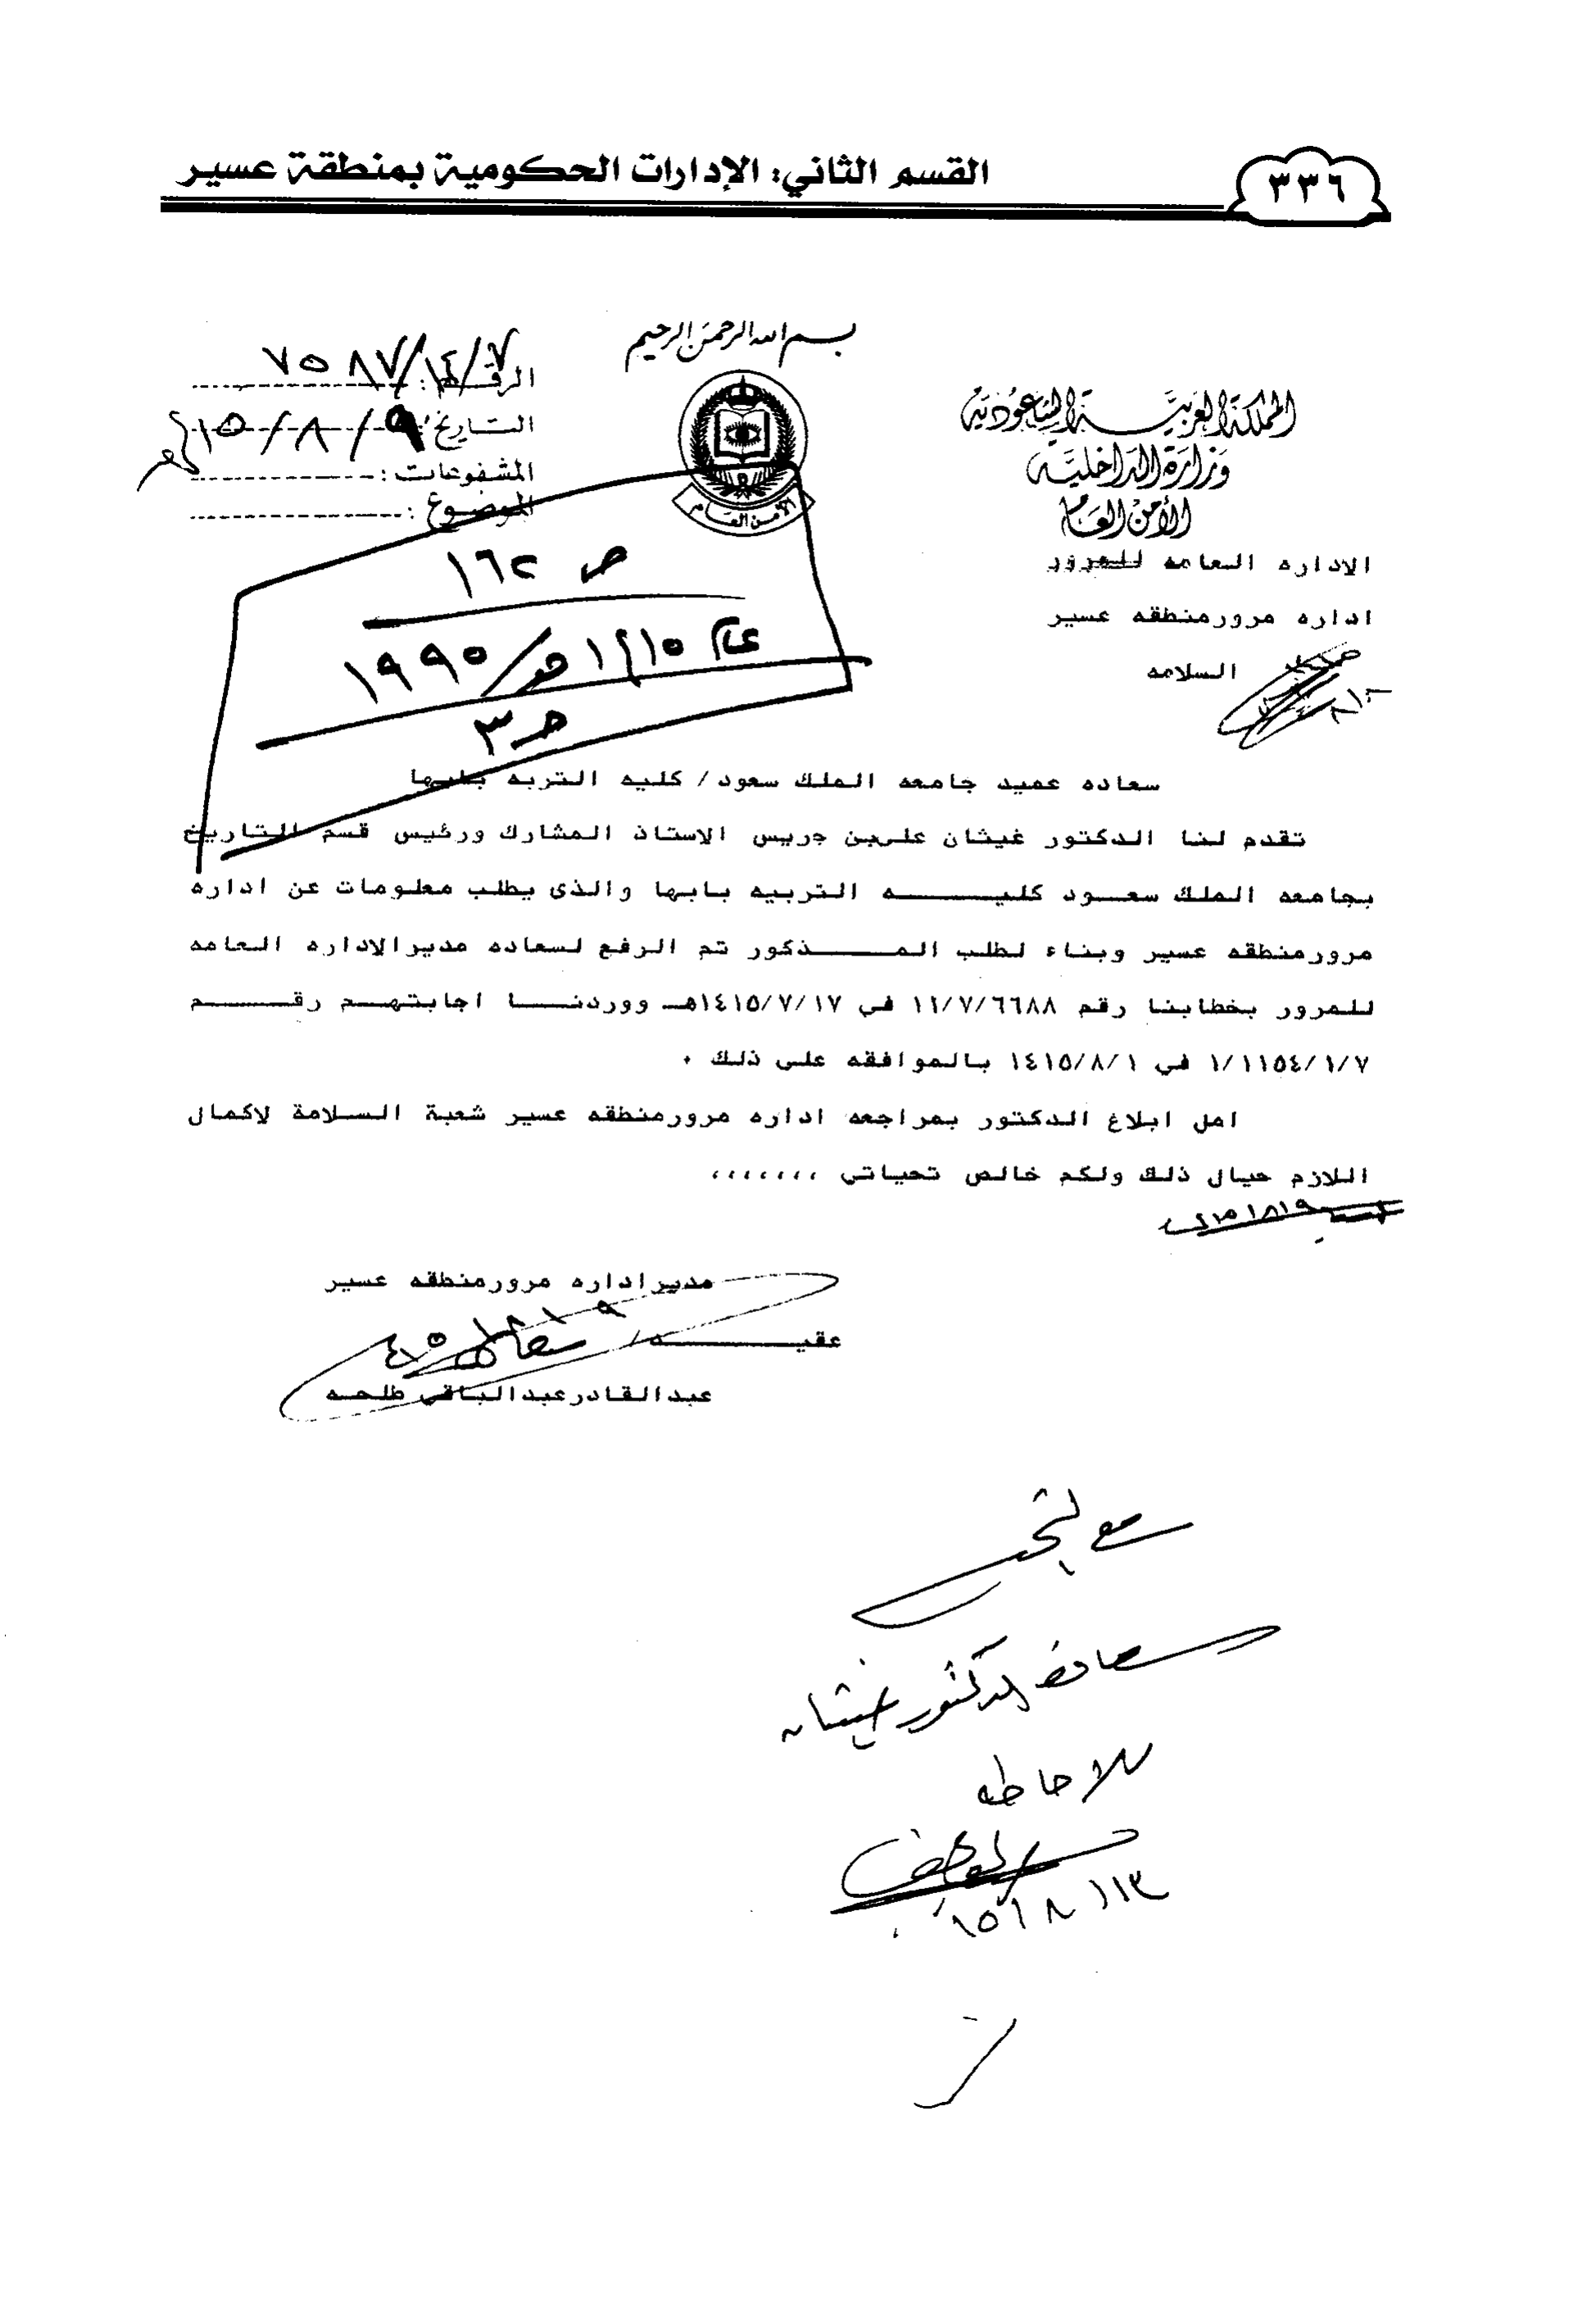 القسم الثاني: الإدارات الحكومية بمنطقة عسير
٣٣٦
بسم الله الرحمن الرحيم
المملكة العربية السعودية
وزارة الداخلية
الأمن العام
الاداره العامه للمرور
اداره مرورمنطقه عسير
السلامه
الأمن العام
الرقم :
التاريخ : ١٥/٨/٩
المشفوعات :
الموضوع :
ص ١٦٢
عام ١٤١٥هـ/١٩٩٥
ص ٣
سعاده عميد جامعه الملك سعود/ كليه التربه بابها
تقدم لنا الدكتور غيثان علىبن جريس الاستاذ المشارك ورئيس قسم التاريخ
بجامعه الملك سعود كليه التربيه بابها والذى يطلب معلومات عن اداره
مرورمنطقه عسير وبناء لطلب المذكور تم الرفع لسعاده مديرالاداره العامه
للمرور بخطابنا رقم ١١/٧/٦٦٨٨ في ١٤١٥/٧/١٧هـ ووردنا اجابتهم رقم
١/١١٥٤/١/٧ في ١٤١٥/٨/١ بالموافقه على ذلك .
امل ابلاغ الدكتور بمراجعه اداره مرورمنطقه عسير شعبة السلامة لاكمال
اللازم حيال ذلك ولكم خالص تحياتى ،،،،،،،
مديراداره مرورمنطقه عسير
عقيه/
عبدالقادرعبدالباقى طلحه
سعادة الدكتور غيثان
للاحاطه
١٥/٨/١٣